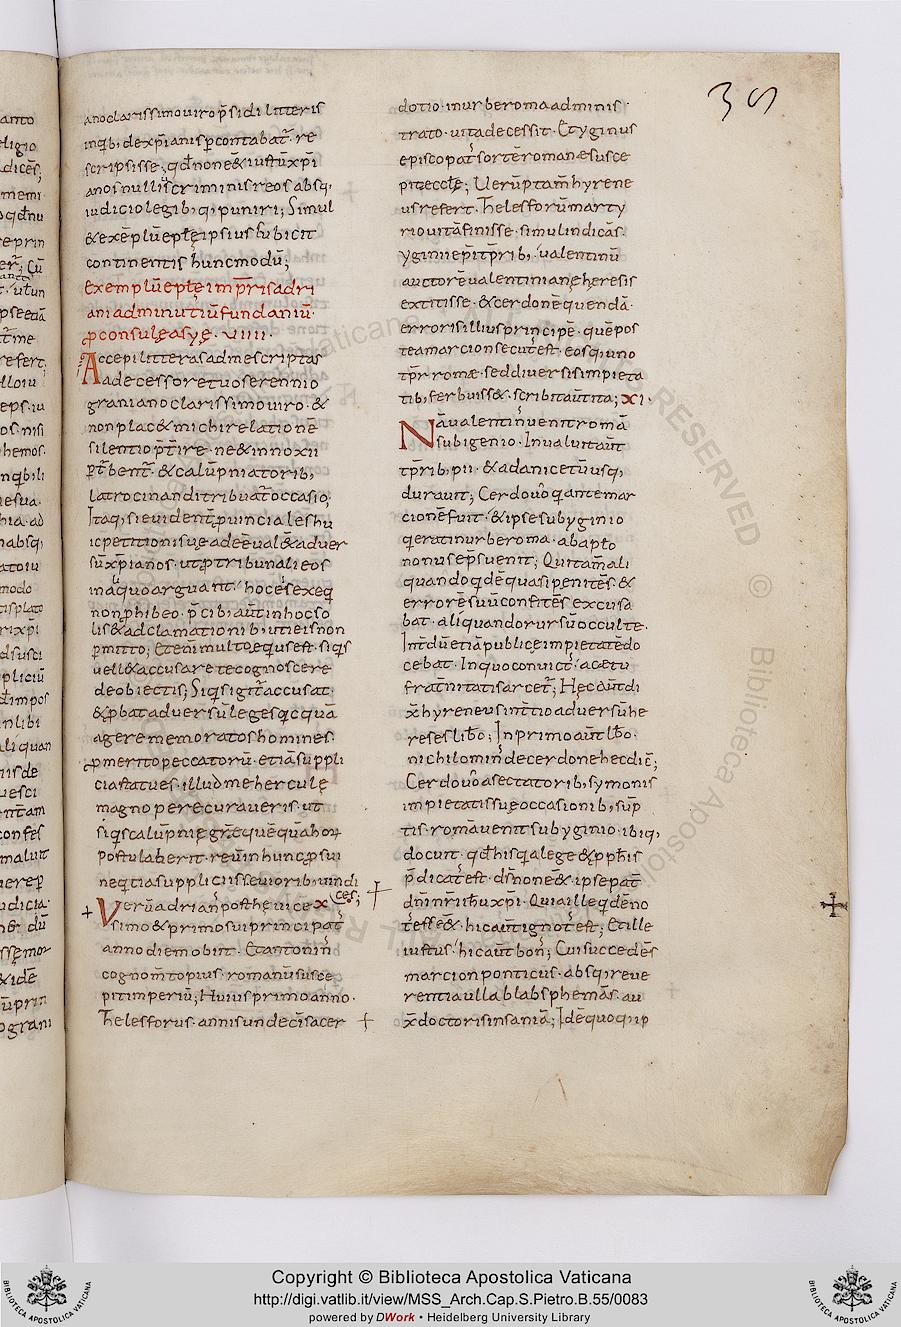 39
anoclarissimouiro p̄sidi litteris
inq̄b; dexp̄ianis p̄contabat̄. re
scripsisse. qd̄ non&iustū xp̄i
anos nullis criminis reos absq;
iudicio legib; q; puniri; Simul
& exēplū ep̄lę ipsius subicit
continentis hunc modū;
exemplū ep̄lę imp̄ris adri
ani ad minutiū fundaniū.
p̄consulē asyę. VIIII.
Accepi litteras ad me scriptas
a adecessore tuo serennio
graniano clarissimo uiro. &
non plac& michi relationē
silentio p̄t̄ire. ne & innoxii
p̄t̄bent̄. & calūpniatorib;
latrocinandi tribuat̄ occasio;
Itaq; si euident̄ p̄uinciales hu
ic petitioni suę adeē ual& aduer
sū xp̄ianos. ut p̄ tribunali eos
in aliquo arguant. hoc eis exeq̄
non phibeo. p̄cib; aūt in hoc so
lis & adclamationib; uti eis non
p̄mitto; Etenī multo equus est. siq̄s
uell& accusare te cognoscere
de obiectis; Siq̄s igit̄ accusat.
& p̄bat aduersū leges qcquā
agere memoratos homines.
p̄ merito peccatorū. etiā suppli
cia statues. illud mehercule
magnopere curaueris. ut
siq̄s calūpnię gr̄ quēquā horū
postulauerit. reū in hunc p̄ sui
neq̄tia suppliciis seuiorib; uindi
ces;
Verū adrian; post hę uice X
simo & primo sui principat;
anno diem obiit. Et antonin;
cognom̄to pius. romanū susce
pit imperiū; Huius primo anno.
Thelesforus. annis undecī sacer
dotio. in urbe roma adminis
trato. uita decessit. Et yginus
episcopat; sortē romanæ susce
pit eccl̄ę; Uerūptam̄ hyrene
us refert. Thelesforū marty
rio uitā finisse. simul indicās.
yginii ep̄i tp̄rib; ualentinū
auctorē ualentinianę heresis
extitisse. & cerdonē quendā.
erroris illius principē. quē pos
tea marcion secut; est. eosq; uno
tp̄r romæ. sed diuersis impieta
tib; ferbuiss&. scribit aūt ita; XI.
Nā ualentin; uenit romā
sub igenio. Inualuit aūt
tp̄rib; pii. & ad anicetū usq;
durauit; Cerdo uo qi ante mar
cionē fuit. & ipse sub yginio
qi erat in urbe roma. ab ap̄to
nonus ep̄s uenit; Qui tam̄ ali
quando qdē quasi penitēs. &
errorē suū confitēs excusa
bat. aliquando rursū occulte.
Int̄dū etiā publice impietatē do
cebat. In quo conuict;. a cetu
frat̄nitatis arcet̄; Hęc aūt di
x̄ hyreneus in t̄tio aduersū he
reses libo; In primo aūt lb̄o.
nichilomin; de cerdone hec dic̄;
Cerdo uo a sectatorib; symonis
impietatis suę occasionib; sūp
tis. romā uenit sub yginio. ibiq;
docuit. qd̄ his q̄ a lege & p̄phis
p̄dicat; est. ds̄. non ē & ipse pat̄
dn̄i nr̄i ihū xp̄i. Quia ille qdē no
t; esse&. hic aūt ignot; est; Et ille
iustus. hic aūt bon;; Cui succedēs
marcion ponticus. absq; reue
rentia ulla blasphemās. au
x̄ doctoris insaniā; Idē quoq; ip
Copyright © Biblioteca Apostolica Vaticana
http://digi.vatlib.it/view/MSS_Arch.Cap.S.Pietro.B.55/0083
powered by DWork • Heidelberg University Library
BIBLIOTECA APOSTOLICA VATICANA
BIBLIOTECA APOSTOLICA VATICANA